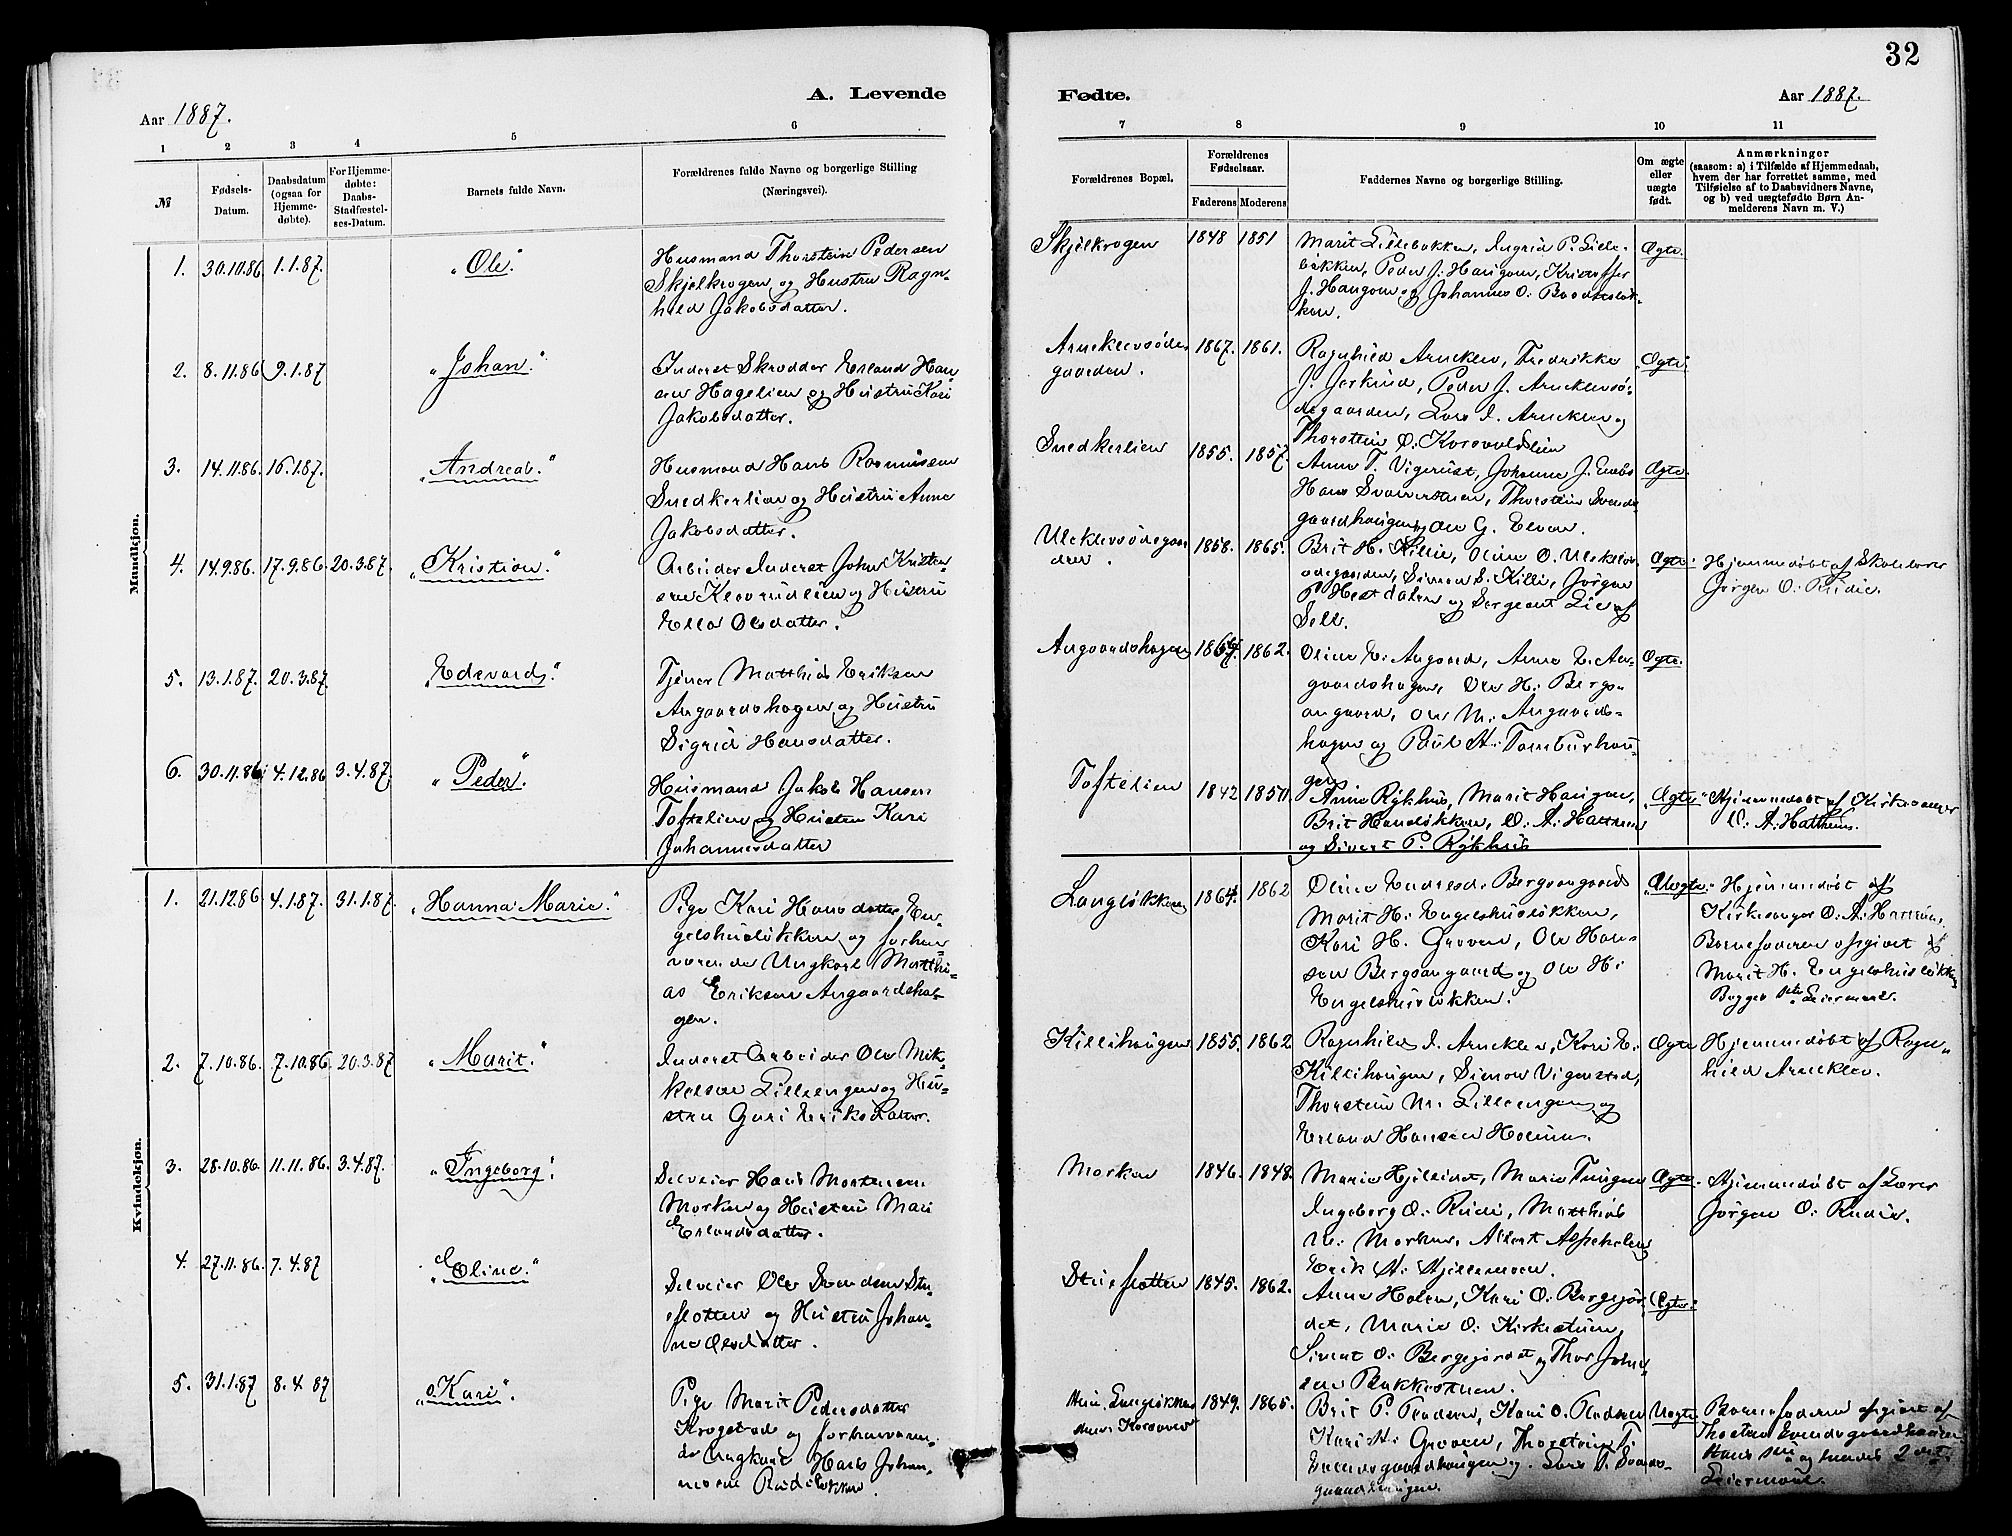 32
A. Levende
Fødte.
Aar 1887.
Aar 1887.
1 2 3 4 5 6
7 8 9 10 11
№
Fødsels-
Datum.
Daabsdatum
(ogsaa for
Hjemme-
døbte).
For Hjemme-
døbte:
Daabs-
Stadfæstel-
ses-Datum.
Barnets fulde Navn.
Forældrenes fulde Navne og borgerlige Stilling
(Næringsvei).
Forældrenes Bopæl.
Forældrenes
Fødselsaar.
Faderens Moderens
Faddernes Navne og borgerlige Stilling.
Om ægte
eller
uægte
født.
Anmærkninger
(saasom: a) i Tilfælde af Hjemmedaab,
hvem der har forrettet samme, med
Tilføielse af to Daabsvidners Navne,
og b) ved uægtefødte Børn An-
melderens Navn m. V.)
Mandkjøn.
1. 30.10.86. 1.1.87. "Ole."
Husmand Thorstein Pedersen
Skjelkrogen og Hustru Ragn-
hild Jakobsdatter.
Skjelkrogen 1848 1851
Marit Lilleløkken, Ingrid P. Lille-
løkken, Peder J. Haugen, Kristoffer
J. Haugen og Johannes O.
ken.
Ægte.
2. 8.11.86 9.1.87 "Johan"
Inderst Skrædder Erland Han
sen Hagelien og Hustru Kari
Jakobsdatter.
Arneklevsøde
gaarden. 1867. 1861.
Ragnhild Arneklev, Fredrikke
J. Jerkind, Peder J. Arneklevsø-
degaarden, Lars I. Arneklev og
Thorstein O. Korsvoldslien
Ægte.
3. 14.11.86. 16.1.87. "Andreas."
Husmand Hans Rasmussen
Snedkerlien og Hustru Anne
Jakobsdatter.
Snedkerlien 1855. 1857.
Anne T. Vigerust, Johanne J.
Hans Thorstein Svends-
gaardhaugen og Ole G.
Ægte.
4. 14.9.86. 17.9.86. 20.3.87. "Kristian."
Arbeider Inderst Johan Kristen-
sen Klevrudlien og Hustru
Ella Olsdatter.
Uleklevsødegaar
den. 1858. 1865.
Brit H. Killie, Oline O. Uleklevs-
ødegaarden, Simen S. Killi, Jørgen
P. Hestdalen og Sergeant Lie af
Sell.
Ægte.
Hjemmedøbt af Skolelærer
Jørgen O. Rudie.
5. 13.1.87. 20.3.87. "Edevard."
Tjener Matthias Eriksen
Angaardshagen og Hustru
Sigrid Hansdatter.
Angaardshagen 1864. 1862.
Oline E. Angaard, Anne E. An-
gaardshagen, Ole H. Bergs-
angaard, Ole M. Angaards-
hagen og Paul A. Tamburhau-
gen
Ægte.
6. 30.11.86. 4.12.86 3.4.87. "Peder."
Husmand Jakob Hansen
Toftelien og Hustru Kari
Johannesdatter
Toftelien 1842 1850.
Anne Rykhus, Marit Haugen,
Brit Haugløkken, O. A. Hatrem
og Sivert P. Rykhus
Ægte.
Hjemmedøbt af Kirkesanger
O. A. Hattrem.
Kvindekjøn.
1. 21.12.86 4.1.87. 31.1.87. "Hanna Marie."
Pige Kari Hansdatter En-
gelshusløkken og forhen-
værende Ungkarl Matthi-
as Eriksen Angaardsha-
gen.
Langløkken 1864. 1862
Oline Endresd. Bergsangaard
Marit H. Engelshusløkken,
Kari H. Groven, Ole Han-
sen Bergsangaard og Ole H.
Engelshusløkken.
Uægte.
Hjemmedøbt af
Kirkesanger O. A. Hattrem.
Barnefaderen opgivet af
Marit H. Engelshusløkken
Begges 1ste Leiermaal.
2. 7.10.86. 7.10.86. 20.3.87 "Marit."
Inderst Arbeider Ole Mik-
kelsen Lillengen og Hu-
stru Guri Eriksdatter.
Killihaugen 1855. 1862
Ragnhild I. Arneklev, Kari E.
Killihaugen, Simen Vigerstad,
Thorstein M. Lillengen og
Erland Hansen Holum.
Ægte
Hjemmedøbt af Ragn-
hild Arneklev.
3. 28.10.86. 11.11.86. 3.4.87. "Ingeborg."
Selveier Hans Mortensen
Morken og Hustru Mari
Erlandsdatter.
Morken 1846. 1848.
Marie Hjellidet, Marie
Ingeborg O. Rudi, Matthias
E. Morken, Albert Aspehølen
Erik H. Hjellemoen.
Ægte.
Hjemmedøbt af Lærer
Jørgen O. Rudie.
4. 27.11.86. 7.4.87 "Eline."
Selveier Ole Svendsen Stu-
flotten og Hustru Johan-
ne Olsdatter.
Stueflotten 1845. 1862.
Anne Holen, Kari O. Bergejor-
det, Marie O. Kirkestuen,
Simen O. Bergejordet og Thor Johan-
sen Bakkestuen.
Ægte.
5. 31.1.87 8.4.87 "Kari".
Pige Marit Pedersdatter
Krogstad og forhenværen-
de Ungkarl Hans Johan-
nesen Rudiløkken.
1849. 1865.
Brit P. Kari O.
Kari H. Groven, Thorstein T.
Svendsgaardhaugen og Lars T. Svends-
gaardhaugen.
Uægte
Barnefaderen opgivet af
Thorstein Svendsgaardhaugen
Hans 1ste og hendes 2det
Leiermaal.